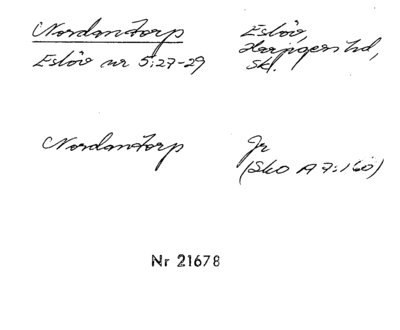 Nordantorp
Eslöv,
Harjagers hd,
Sk.
Eslöv nr 5:27-29
Nordantorp
Jr
(SkO A 7:160)
Nr 21678